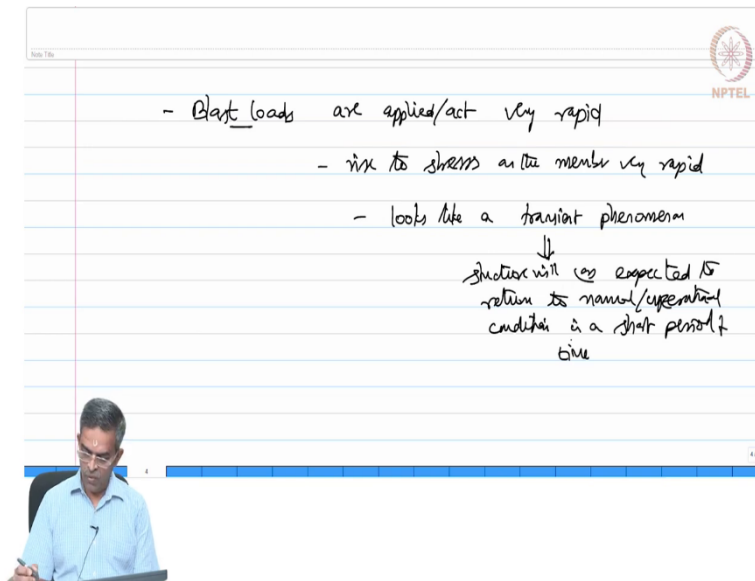 Note Title
NPTEL
- Blast loads are applied/act very rapid
- rise to stresses on the member very rapid
- looks like a transient phenomenon
⇓
structure will expected to
return to normal/operational
condition in a short period of
time
4